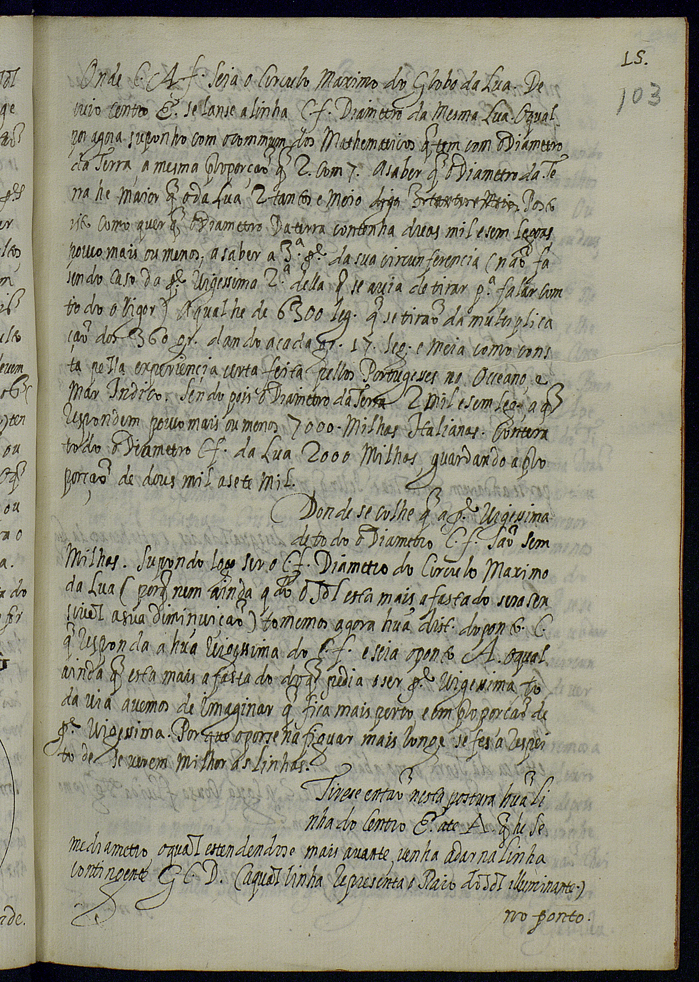 15.
103
Onde C. A f. Seria o Circulo Maximo do Globo da Lua. De
cujo centro E. se lanse a linha C f. Diametro da Mesma Lua. O qual
por agora suponho com o commum dos Mathematicos q̃ tem com o Diametro
da Terra, a mesma proporçaõ q̃ 2. com 7. A saber q̃ o Diametro da Te
rra he Maior q̃ o da Lua, 2 tantos e Meio
como quer q̃ o Diametro Da terra contenha duas mil e sem legoas
pouco mais ou menos, a saber a 3.ª p.ᵉ da sua circunferencia (naõ fa
sendo caso da p.ᵉ Vigessima 2.ª della q̃ se avia de tirar p.ª falar com
todo o Rigor) A qual he de 6300 leg. q̃ se tiraõ da multiplica
çaõ dos 360 gr. dando a cada gr. 17. leg. e meia como cons
ta pella experiencia certa feita pellos Portugeses no Occeano e
Mar Indico. Sendo pois o Diametro da Terra 2 mil e sem leg. a q̃
respondem pouco mais ou menos 7000. Milhas Italianas. Contera
todo o Diametro C f. da Lua 2000 Milhas guardando a pro
porçaõ de dous mil a sete Mil.
Donde se colhe q̃ a p.ᵉ Vigessima
de todo o Diametro C f. Saõ sem
Milhas. Supondo logo ser o C f. Diametro do Circulo Maximo
da Lua (porq̃ nem ainda q̃do o Sol esta mais afastado sera sen
sivel a sua diminuiçaõ) tomemos agora huã dist. do ponto C
q̃ responda a huã Vigessima do C f. e seia o ponto A. o qual
ainda q̃ esta mais afastado do q̃ pedia ser p.ᵉ Vigessima to
da via avemos de imaginar q̃ fica mais perto e em proporçaõ de
p.ᵉ Vigessima. Porque o porse na figura mais longe se fes a respei
to de se verem milhor as linhas.
Tirese entaõ nesta postura huã li
nha do Centro E. ate A. q̃ he Se
mediametro, o qual estendendose mais avante, venha a dar na linha
contingente G C D. (a qual linha representa o Raio do Sol illuminante.)
no ponto.